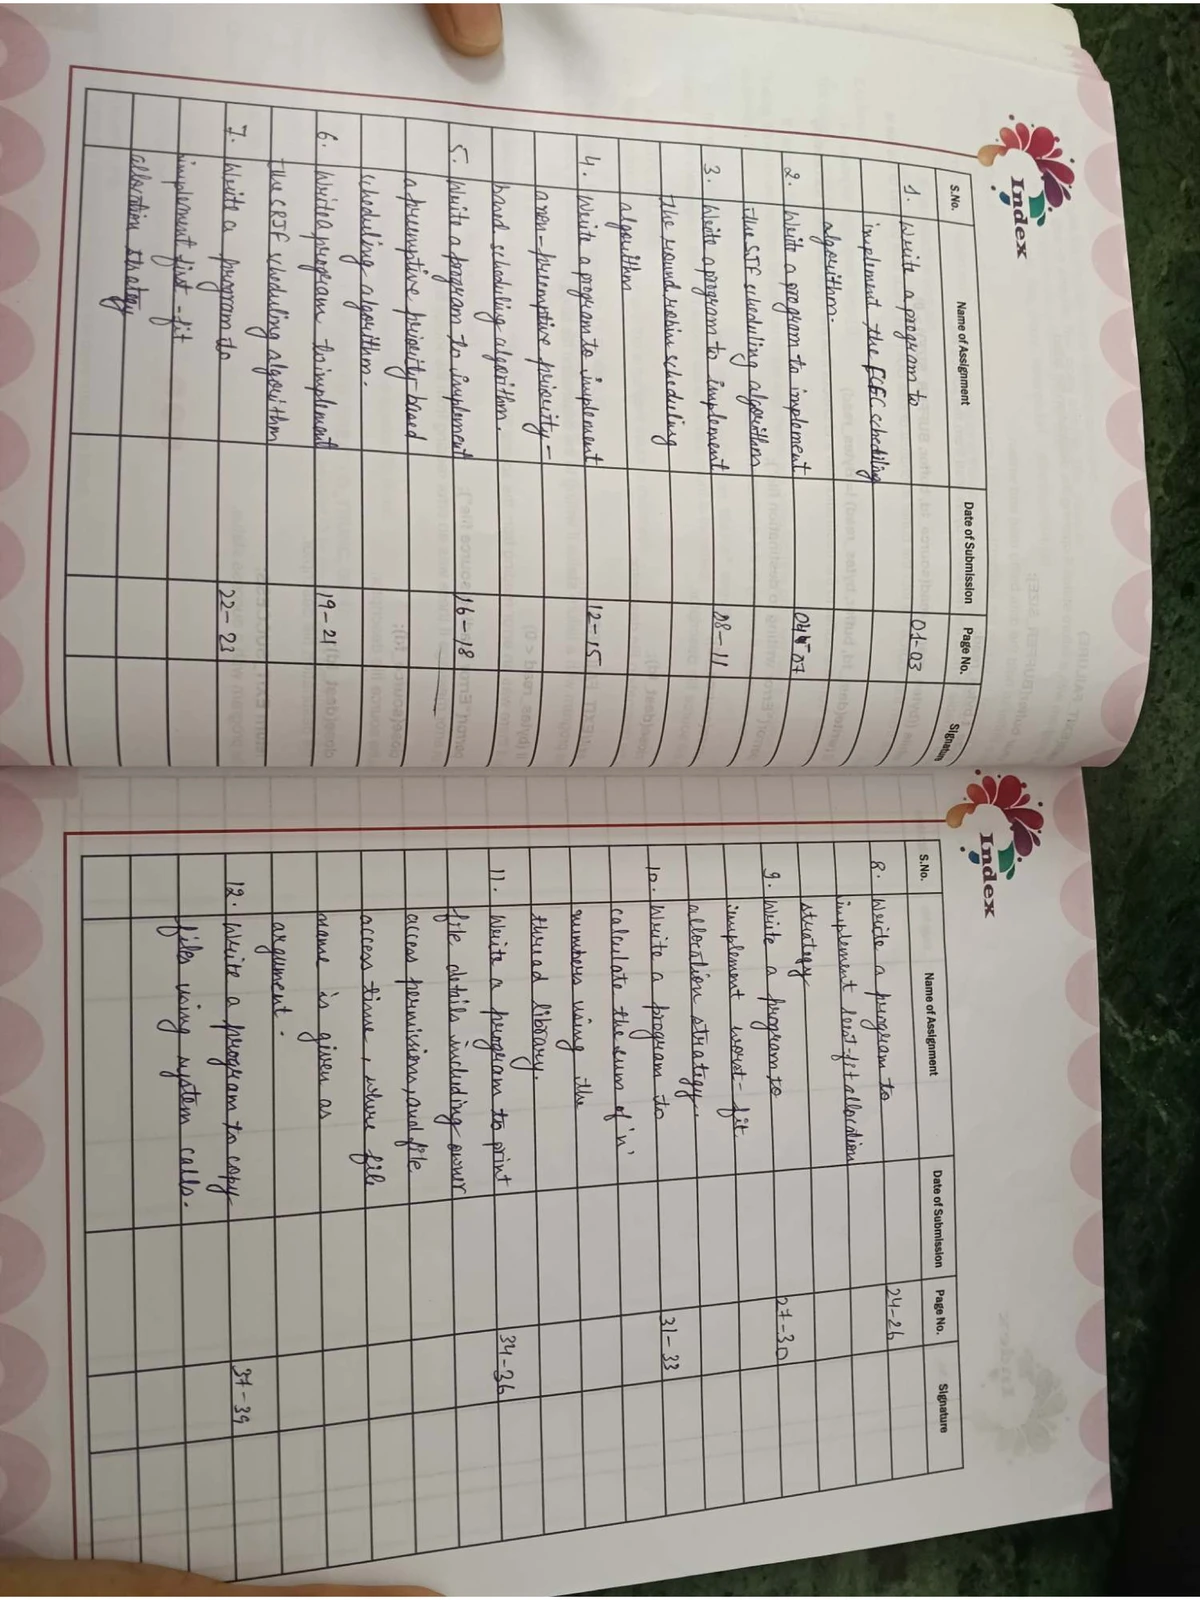 Index
S.No. Name of Assignment Date of Submission Page No. Signature
1. Write a program to 01-03
implement the FCFC scheduling
algorithm.
2. Write a program to implement 04-07
the SJF scheduling algorithm
3. Write a program to implement 08-11
the round robin scheduling
algorithm
4. Write a program to implement 12-15
a non-preemptive priority-
based scheduling algorithm.
5. Write a program to implement 16-18
a preemptive priority-based
scheduling algorithm.
6. Write a program to implement 19-21
the SRJF scheduling algorithm
7. Write a program to 22-23
implement first-fit
allocation strategy
Index
S.No. Name of Assignment Date of Submission Page No. Signature
8. Write a program to 24-26
implement best-fit allocation
strategy
9. Write a program to 27-30
implement worst-fit
allocation strategy.
10. Write a program to 31-33
calculate the sum of 'n'
numbers using the
thread library.
11. Write a program to print 34-36
file details including owner
access permissions, and file
access time, where file
name is given as
argument.
12. Write a program to copy 37-39
files using system calls.